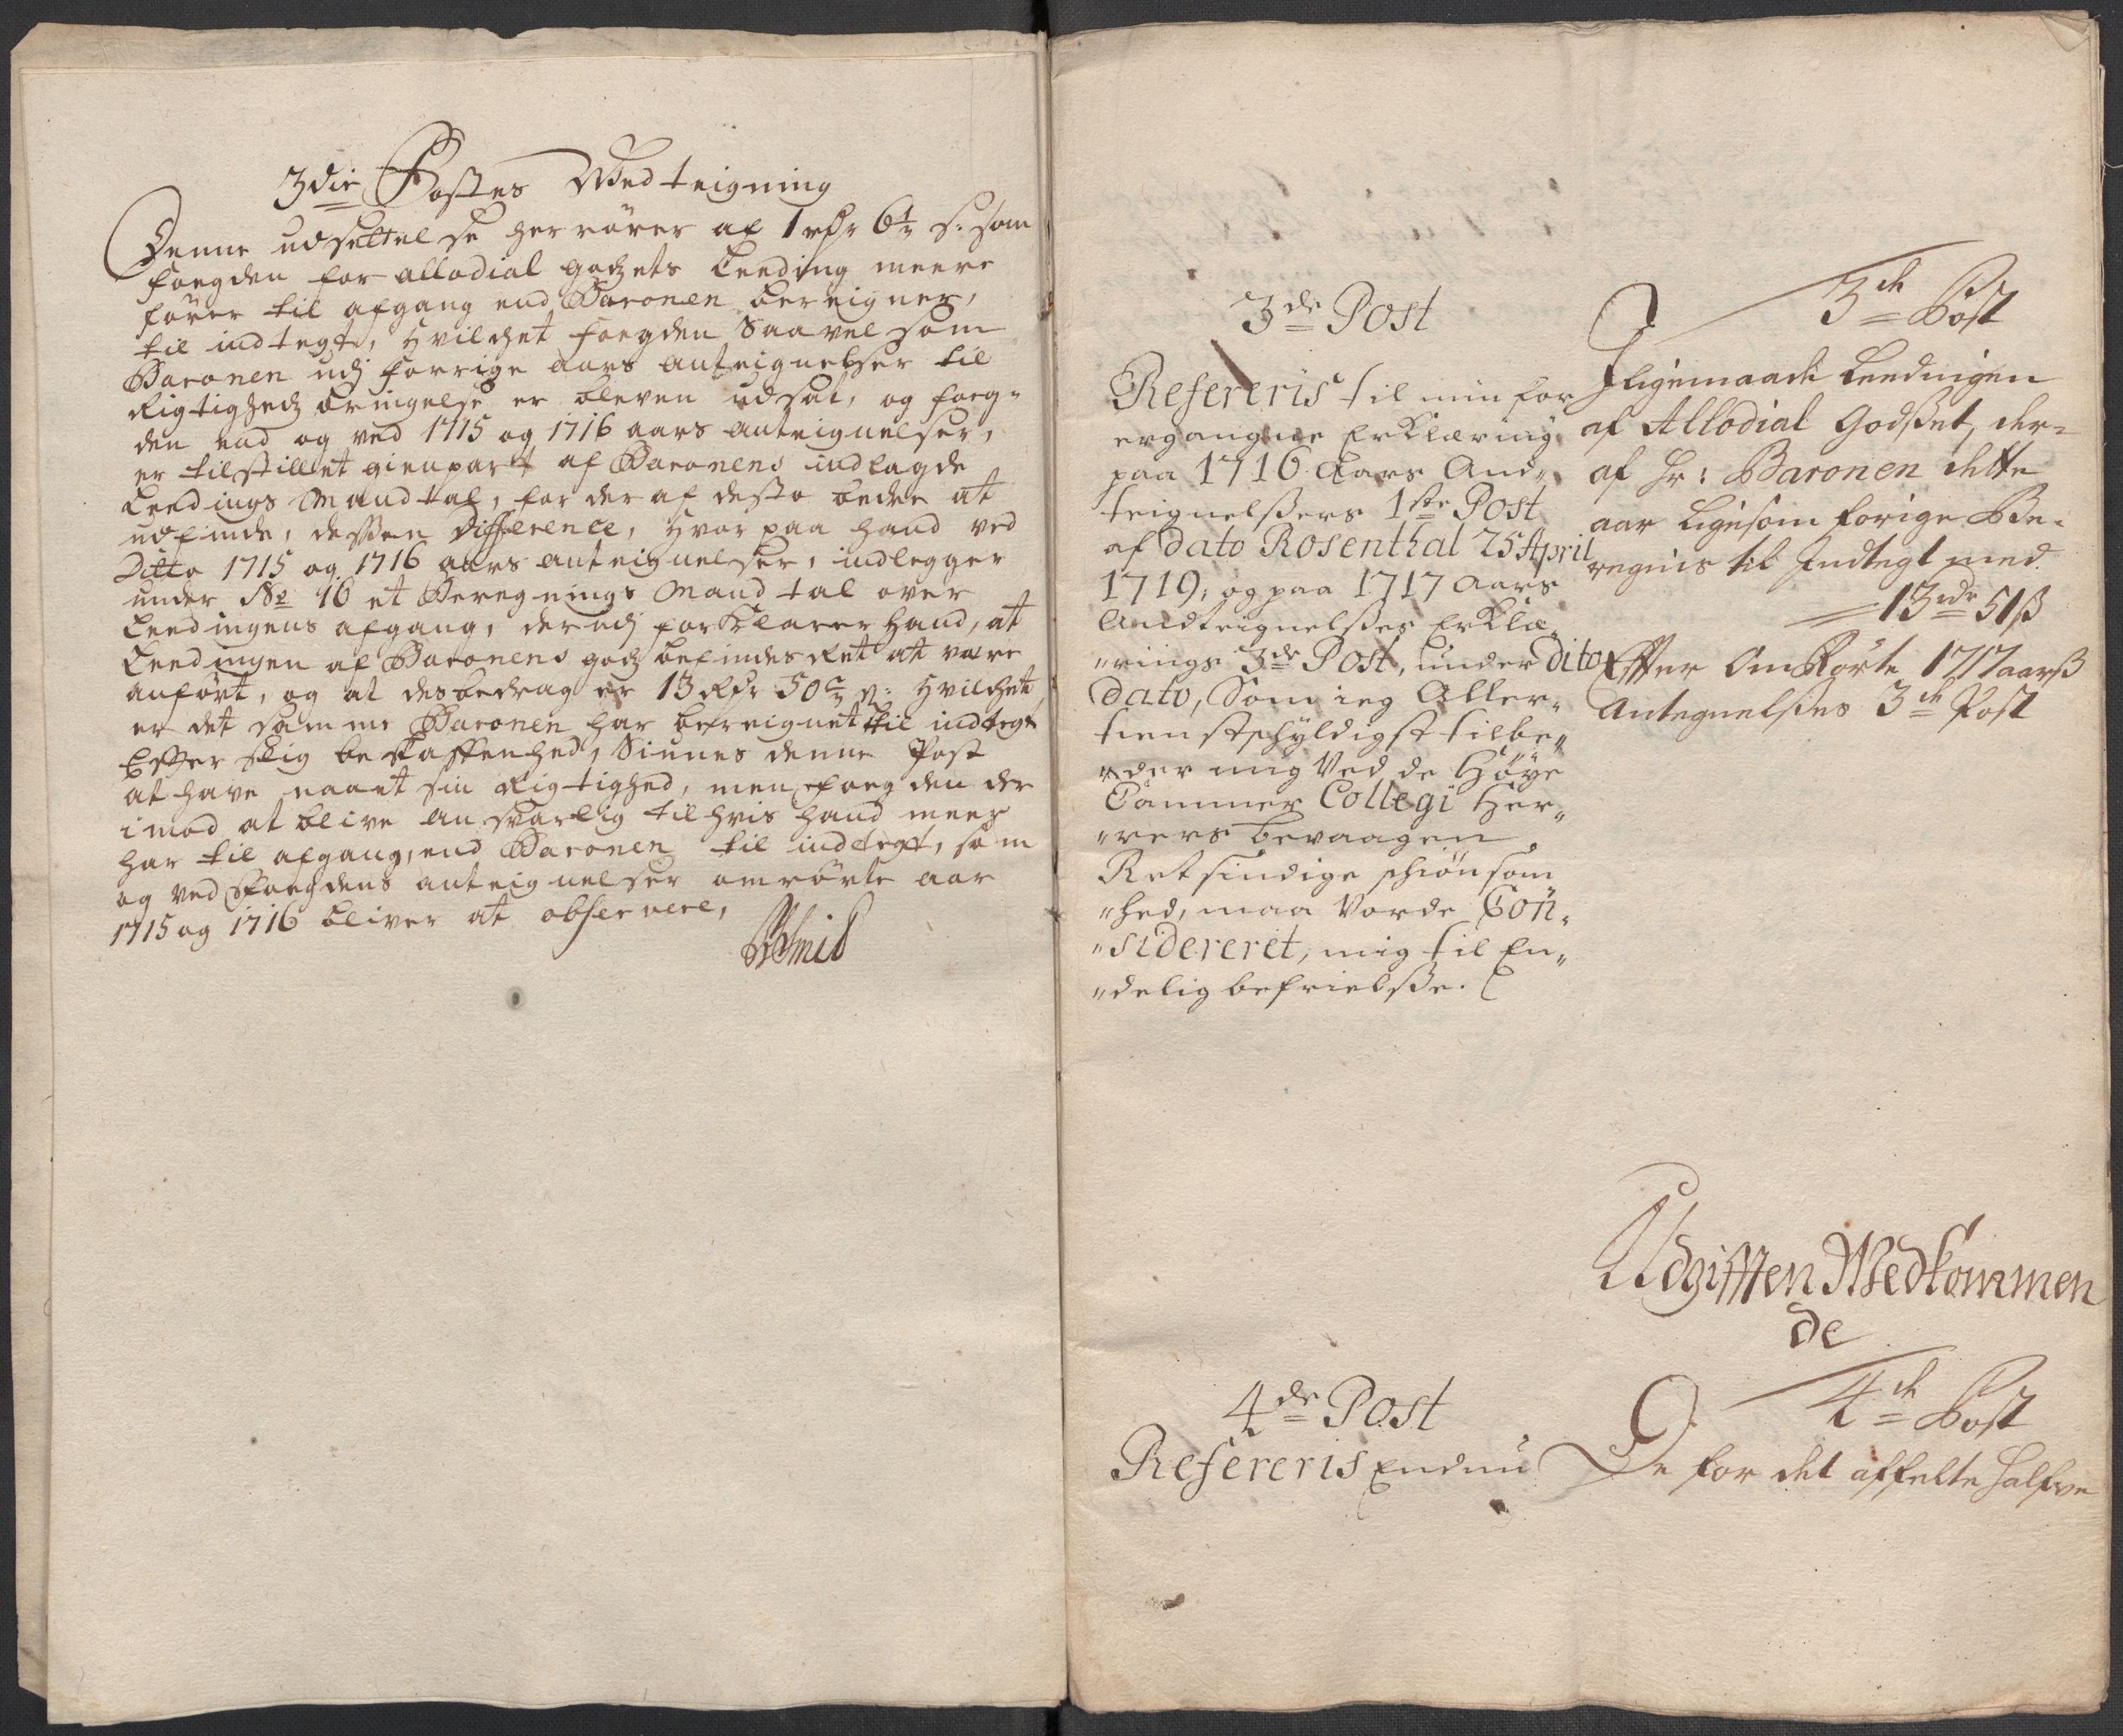 3die Postes Wedteigning
Denne udsettelse herrörer af 1 rdr 6½ s: som
foegden for allodial godzets Leeding meere
förer til afgang end Baronen bereigner,
til indtegt, Hvilchet foegden Saavel som
Baronen udj forrige aars anteignelser til
Rigtighedz bringelse er bleven udsat, og foeg-
den end og ved 1715 og 1716 aars anteignelser,
er tilstillet gienpart af Baronens indlagde
Leedings Mandtal, for der af desto bedre at
udfinde, dessen Difference, Hvor paa hand ved
Ditto 1715 og 1716 aars anteignelser, indlegger
under No 16 et Beregnings Mandtal over
Leedingens afgang, derudj forklarer hand, at
Leedingen af Baronens godz befindes Ret at være
anfört, og at des bedrag er 13 Rdr 50 Hvilchet
er det samme Baronen har bereignet til indtegt
Efter slig beskaffenhed, Siunes denne Post
at have naaet sin Rigtighed, men foegden der
imod at blive ansvarlig til hvis hand meer
har til afgang, end Baronen til indtegt, som
og ved foegdens anteignelser omrörte aar
1715 og 1716 bliver at observere,
Smid
3de Post
Refereris til min for
ergangne Erklæring
paa 1716 Aars And„
teignelssers 1ste Post
af dato Rosenthal 25 April
1719, og paa 1717 Aars
Andteignelsses Erklæ„
„rings 3de Post, under dito
dato, Som ieg Aller„
tienstschyldigst tilbe„
„der mig Ved de Höye
Cammer Collegi Her„
„rers bevaagen
Retsindige schiönsom
„hed, maa Vorde Con„
„sidereret, mig til En„
„delig befrielsse.
3de Post
Jligemaade Leedingen
af Allodial Godsset, der-
af Hr: Baronen dette
aar ligesom forige Be-
regnis til Indtegt med
13 rdr 51 ß
Efter Omrörte 1717 aarß
Antegnelsses 3de Post
Udgifften Wedkommen
de
4de Post
Refereris Endnu
4de Post
De for det affelte halfve